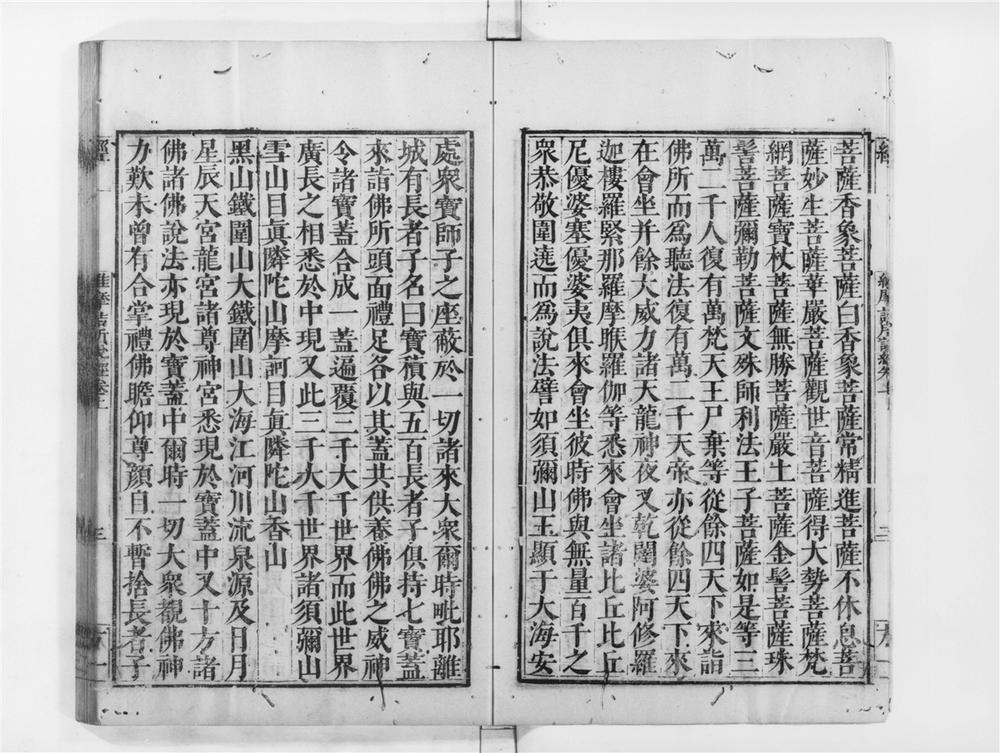 經
維摩詰所說經卷上
三
菩薩香象菩薩白香象菩薩常精進菩薩不休息菩
薩妙生菩薩華嚴菩薩觀世音菩薩得大勢菩薩梵
網菩薩寶杖菩薩無勝菩薩嚴土菩薩金髻菩薩珠
髻菩薩彌勒菩薩文殊師利法王子菩薩如是等三
萬二千人復有萬梵天王尸棄等從餘四天下來詣
佛所而爲聽法復有萬二千天帝亦從餘四天下來
在會坐并餘大威力諸天龍神夜叉乾闥婆阿修羅
迦樓羅緊那羅摩睺羅伽等悉來會坐諸比丘比丘
尼優婆塞優婆夷俱來會坐彼時佛與無量百千之
衆恭敬圍遶而爲說法譬如須彌山王顯于大海安
處衆寶師子之座蔽於一切諸來大衆爾時毗耶離
城有長者子名曰寶積與五百長者子俱持七寶蓋
來詣佛所頭面禮足各以其蓋共供養佛佛之威神
令諸寶蓋合成一蓋遍覆三千大千世界而此世界
廣長之相悉於中現又此三千大千世界諸須彌山
雪山目眞隣陀山摩訶目眞隣陀山香山
黑山鐵圍山大鐵圍山大海江河川流泉源及日月
星辰天宮龍宮諸尊神宮悉現於寶蓋中又十方諸
佛諸佛說法亦現於寶蓋中爾時一切大衆覩佛神
力歎未曾有合掌禮佛瞻仰尊顏目不暫捨長者子
經
維摩詰所說經卷上
三